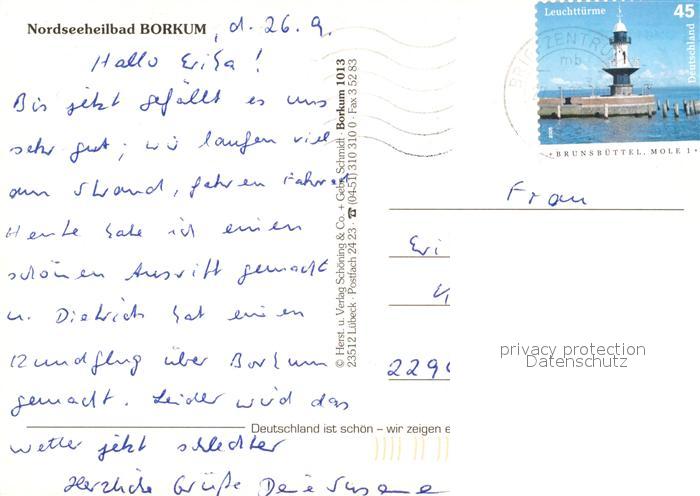 Nordseeheilbad BORKUM, d. 26. 9.
Hallo Erika!
Bis jetzt gefällt es uns
sehr gut; wir laufen viel
am Strand, fahren Fahrrad
Heute habe ich einen
schönen Ausritt gemacht
u. Dietrich hat einen
Rundflug über Borkum
gemacht. Leider wird das
Wetter jetzt schlechter
Herzliche Grüße Deine Susanne
Deutschland ist schön – wir zeigen e
© Herst. u. Verlag Schöning & Co. + Gebr. Schmidt · Borkum 1013
23512 Lübeck · Postfach 24 23 · ☎ (04 51) 310 310 0 · Fax 3 52 83
Leuchttürme 45
Deutschland
BRIEFZENTRUM
mb
BRUNSBÜTTEL, MOLE 1
Frau
Eri
229
privacy protection
Datenschutz